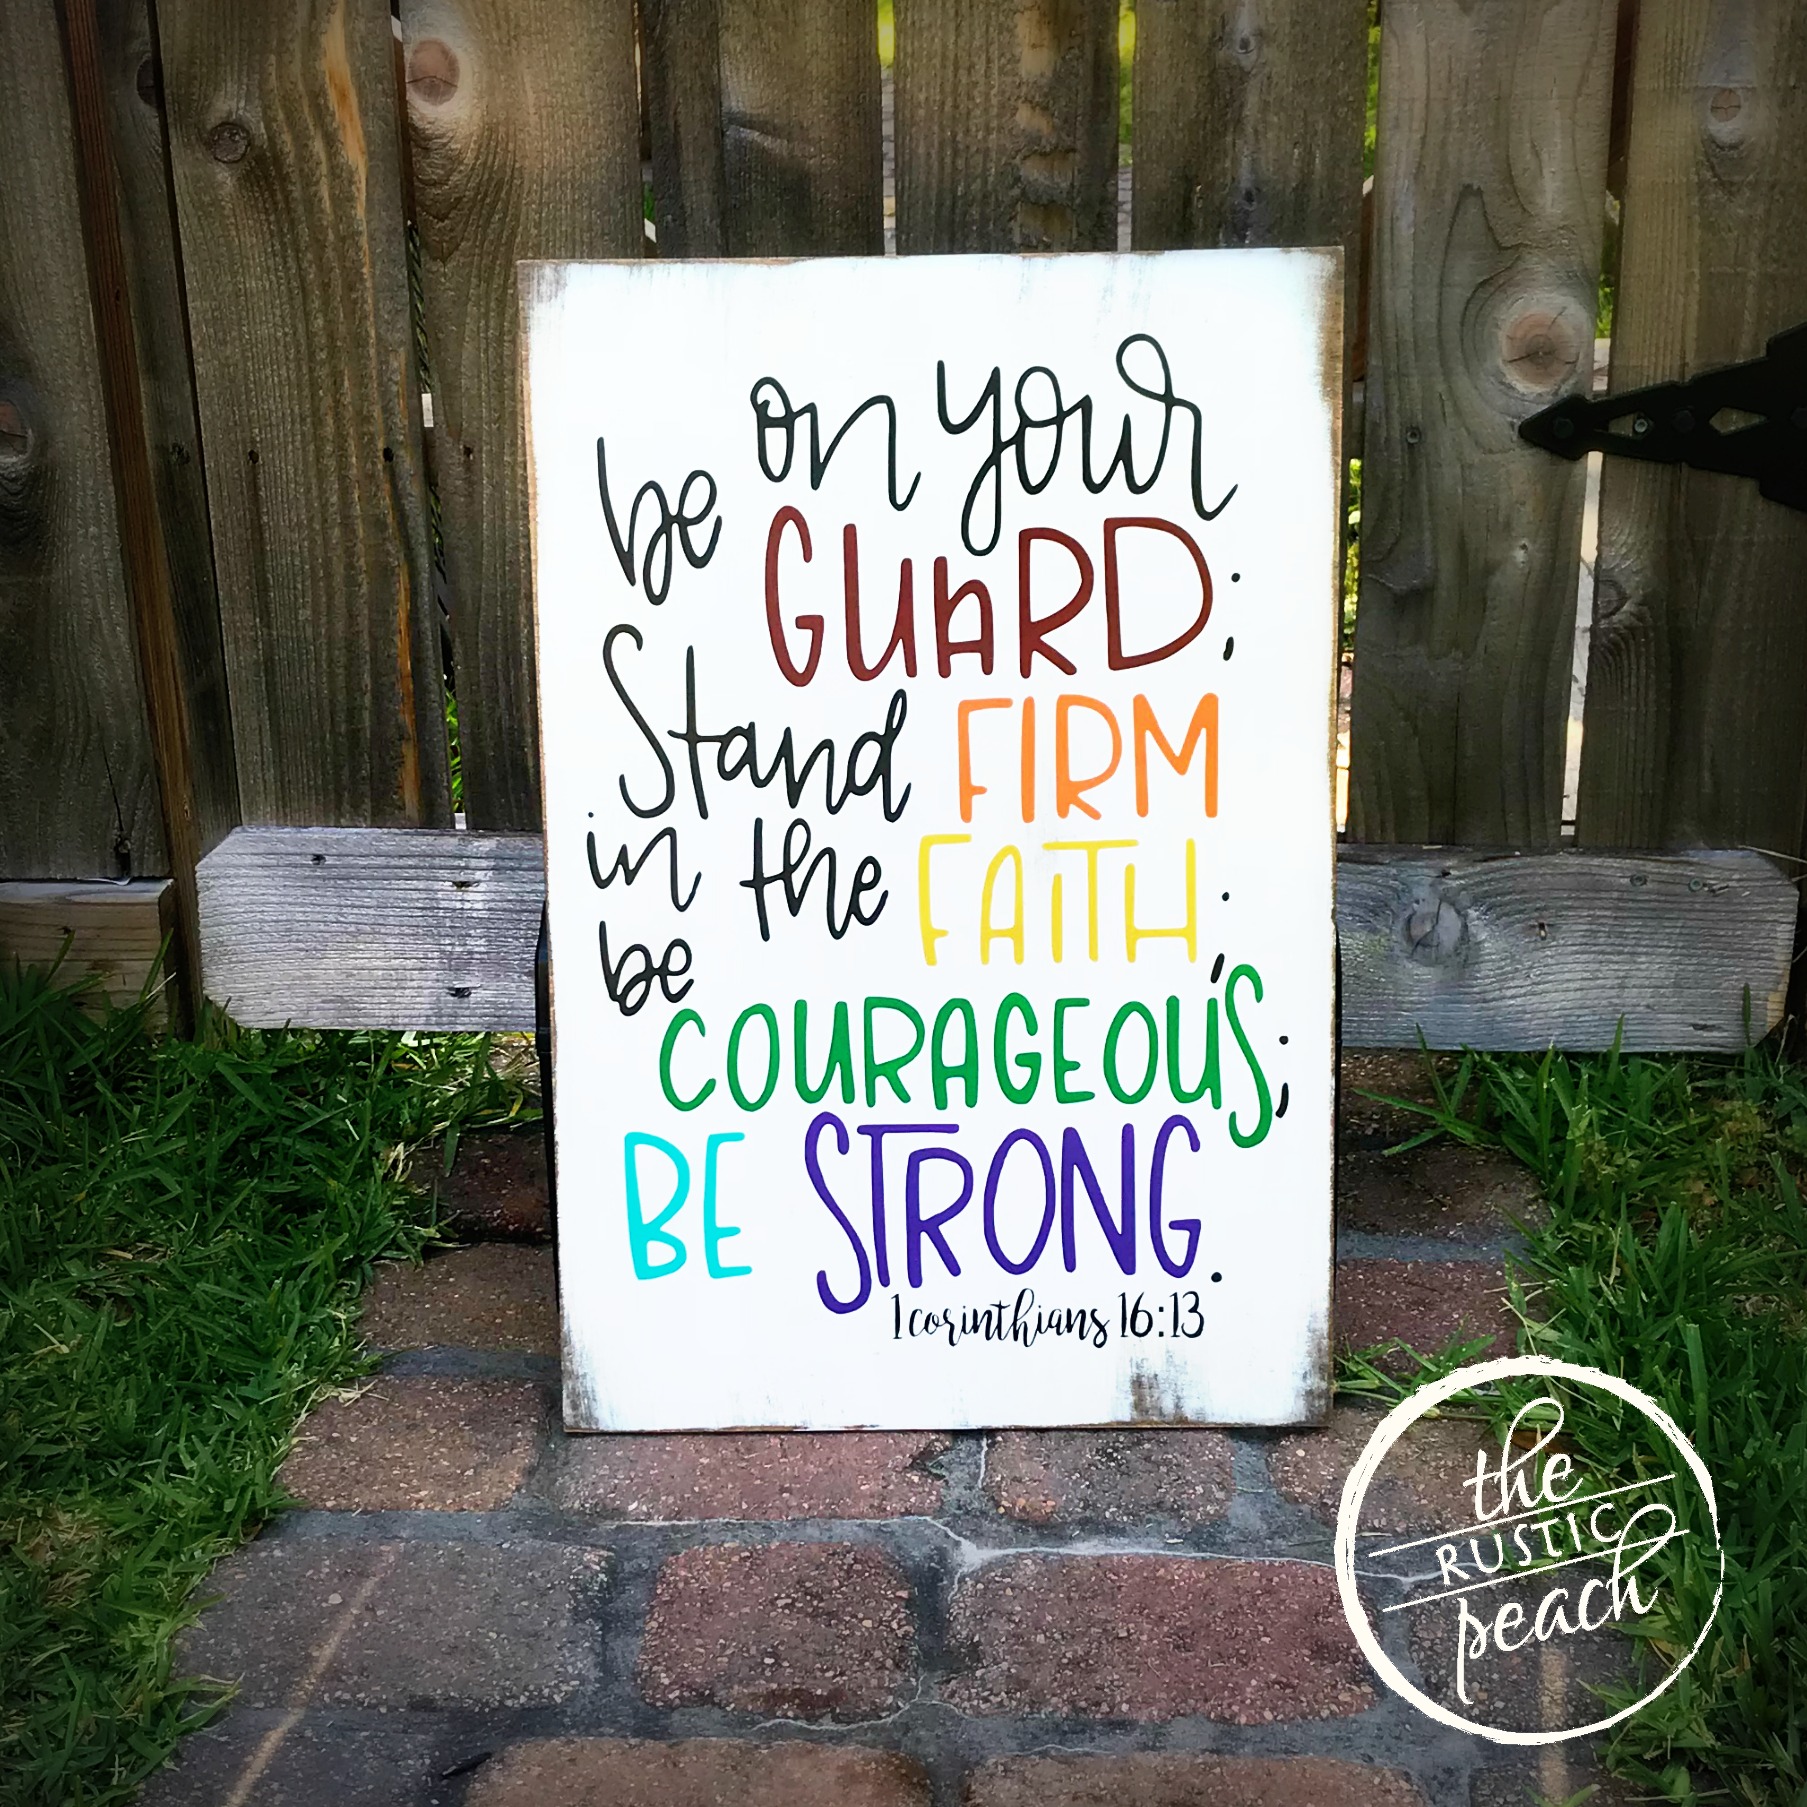 be on your
GUARD;
Stand FIRM
in the FAITH;
be
COURAGEOUS;
BE STRONG.
1 corinthians 16:13
the
RUSTIC
peach